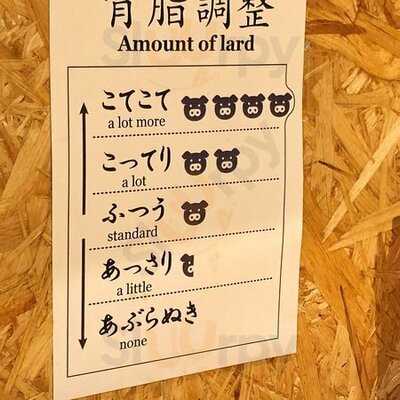 背脂調整
Amount of lard
こてこて
a lot more
こってり
a lot
ふつう
standard
あっさり
a little
あぶらぬき
none